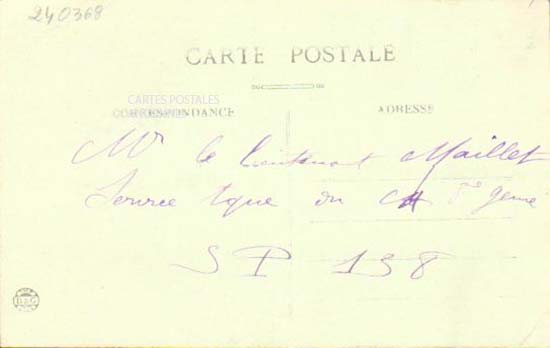 240368
CARTE POSTALE
CARTES POSTALES
CORRESPONDANCE
ADRESSE
Mr le Lieutenant Maillet
Service tque du 8e génie
SP 138